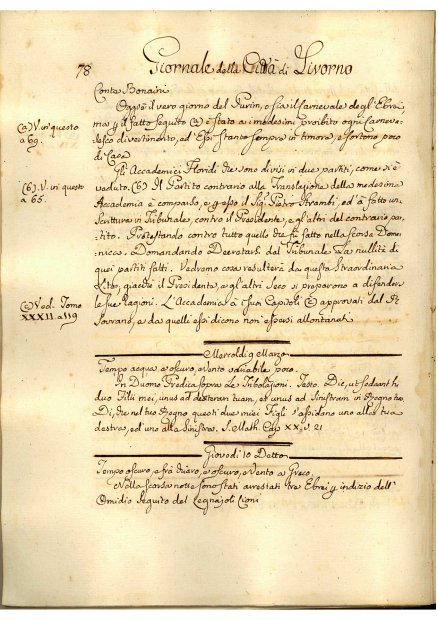 78 Giornale della Città di Livorno
Conte Bonaini
Oggi è il vero giorno del Purim, o sia il carnevale degl'Ebrei
ma p il fatto seguito (a) è stato a i medesimi proibito ogni Carneva-
(a) V. in questo
a 69.
lesco divertimento, ed Essi stanno sempre in timore, e sortono poco
di Casa
Gli Accademici Floridi che sono divisi in due partiti, come si è
veduto. (b) Il Partito contrario alla Translazione della medesima
(b). V. in questo
a 65.
Accademia è comparso, e p esso il Sigr. Pietro Strambi, ed à fatto un
Scrittura in Tribunale, contro il Presidente, e gl'altri del contrario par-
tito. Protestando contro tutto quello che fù fatto nella scorsa Dome-
nica. Domandando Decretarsi del Tribunale la nullità di
quei partiti fatti. Vedremo cosa resulterà da questa straordinaria
Lite, giacchè il Presidente, e gl'altri seco si preparono a difendere
le sue Ragioni. L'Accademia à i suoi Capitoli (c) approvati dal Rl.
(c) Ved. Tomo
XXXII. a 119
Sovrano, e da quelli essi dicono non essersi allontanati
Mercoldì 9 Marzo
Tempo acqua, e oscuro, e vento variabile poco.
In Duomo Predica sopra Le Tribolazioni. Testo. Dic, ut sedeant hi
duo Filii mei, unus ad dexteram tuam, et unus ad sinistram in Regno tuo
Di, che nel tuo Regno questi due miei Figli s'assidano uno alla tua
destra, ed uno alla sinistra. S. Math. Cap XX, v. 21
Giovedì 10 Detto
Tempo oscuro, e frà chiaro, e oscuro, e Vento a Greco.
Nella scorsa notte sono stati arrestati tre Ebrei p indizio dell'
Omidio seguito del Legnajolo Cioni